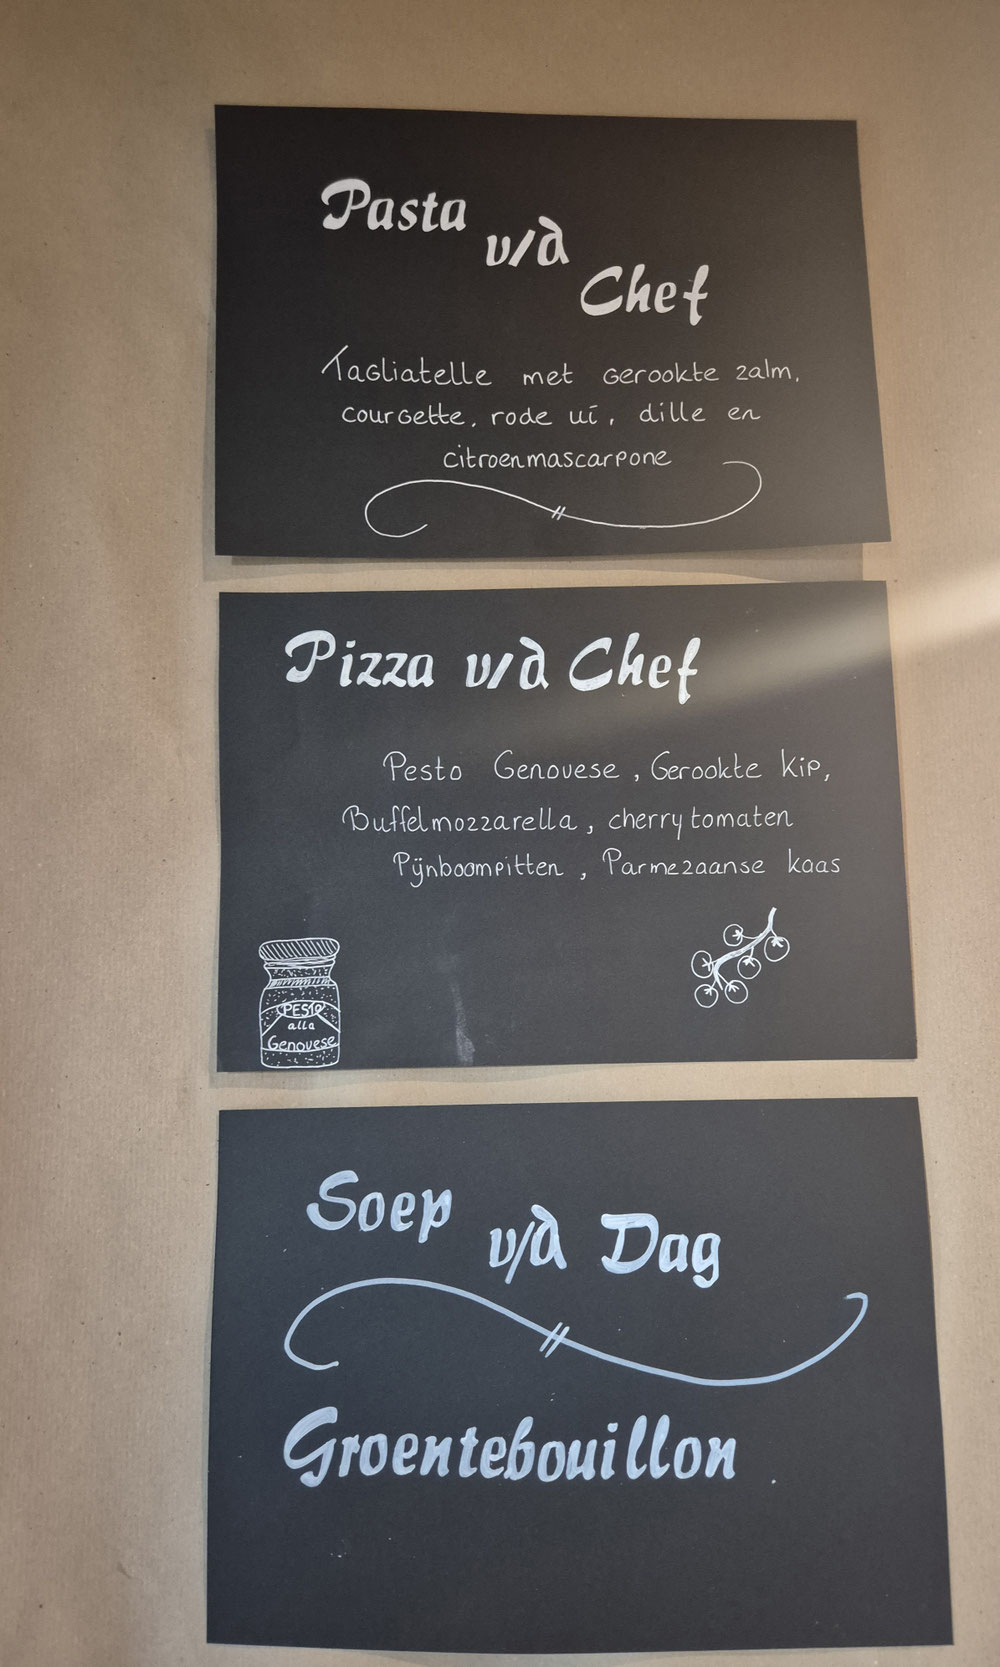 Pasta
v/d
Chef
Tagliatelle met Gerookte zalm,
courgette, rode ui, dille en
citroenmascarpone
Pizza v/d Chef
Pesto Genovese, Gerookte kip,
Buffelmozzarella, cherrytomaten
Pijnboompitten, Parmezaanse kaas
PESTO
alla
Genovese
Soep
v/d Dag
Groentebouillon